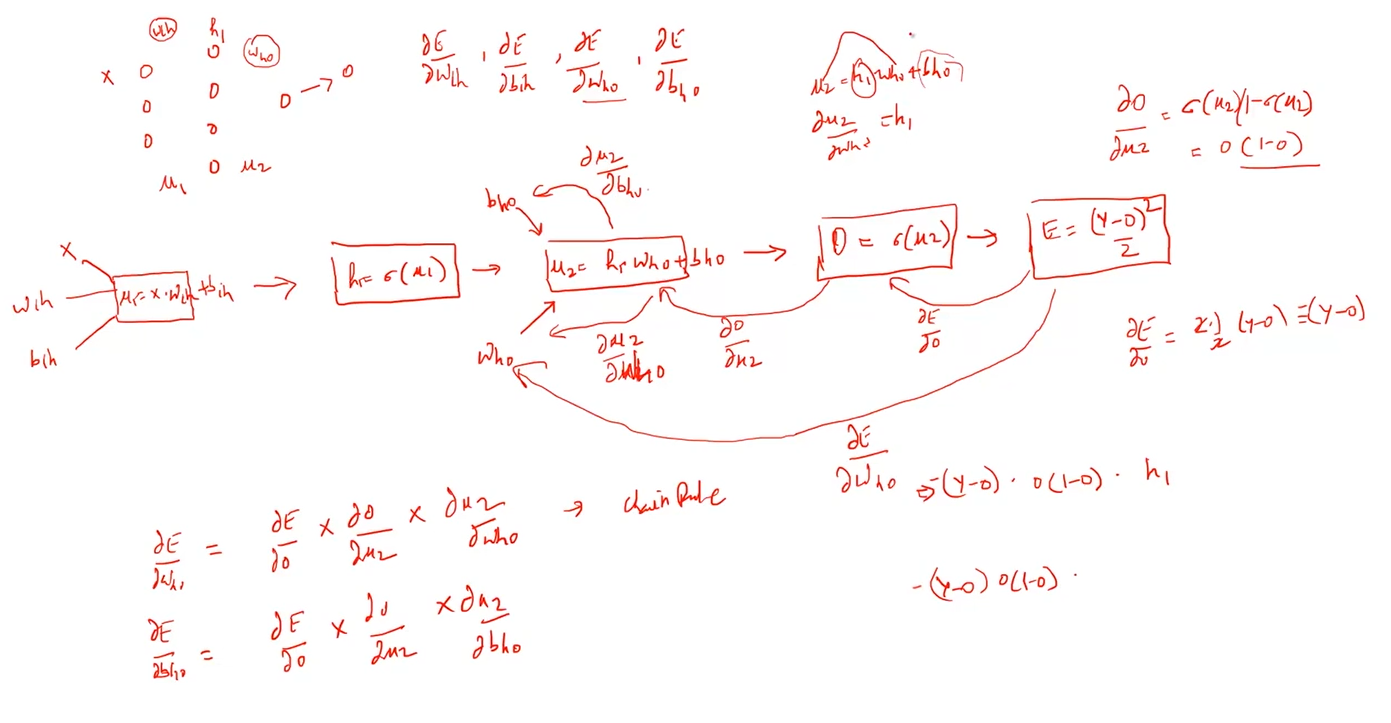 wih h₁ who
x 0 0
0 0 0 → 0
0 0
0 0
u₁ u₂
∂E/∂wih , ∂E/∂bih , ∂E/∂who , ∂E/∂bho
u₂ = h₁ who + bho
∂u₂/∂who = h₁
∂O/∂u₂ = σ(u₂)(1-σ(u₂)
= 0(1-0)
∂u₂/∂bho
bho
x
wih
bih
u₁ = x.wih + bih →
h₁ = σ(u₁) →
u₂ = h₁.who + bho →
O = σ(u₂) →
E = (y-0)²/2
who
∂u₂/∂who
∂O/∂u₂
∂E/∂O
∂E/∂O = 2.1/2 (y-0) = -(y-0)
∂E/∂who ⇒ -(y-0) . 0(1-0) . h₁
∂E/∂who = ∂E/∂O × ∂O/∂u₂ × ∂u₂/∂who → chain Rule
-(y-0) 0(1-0) .
∂E/∂bho = ∂E/∂O × ∂O/∂u₂ × ∂u₂/∂bho